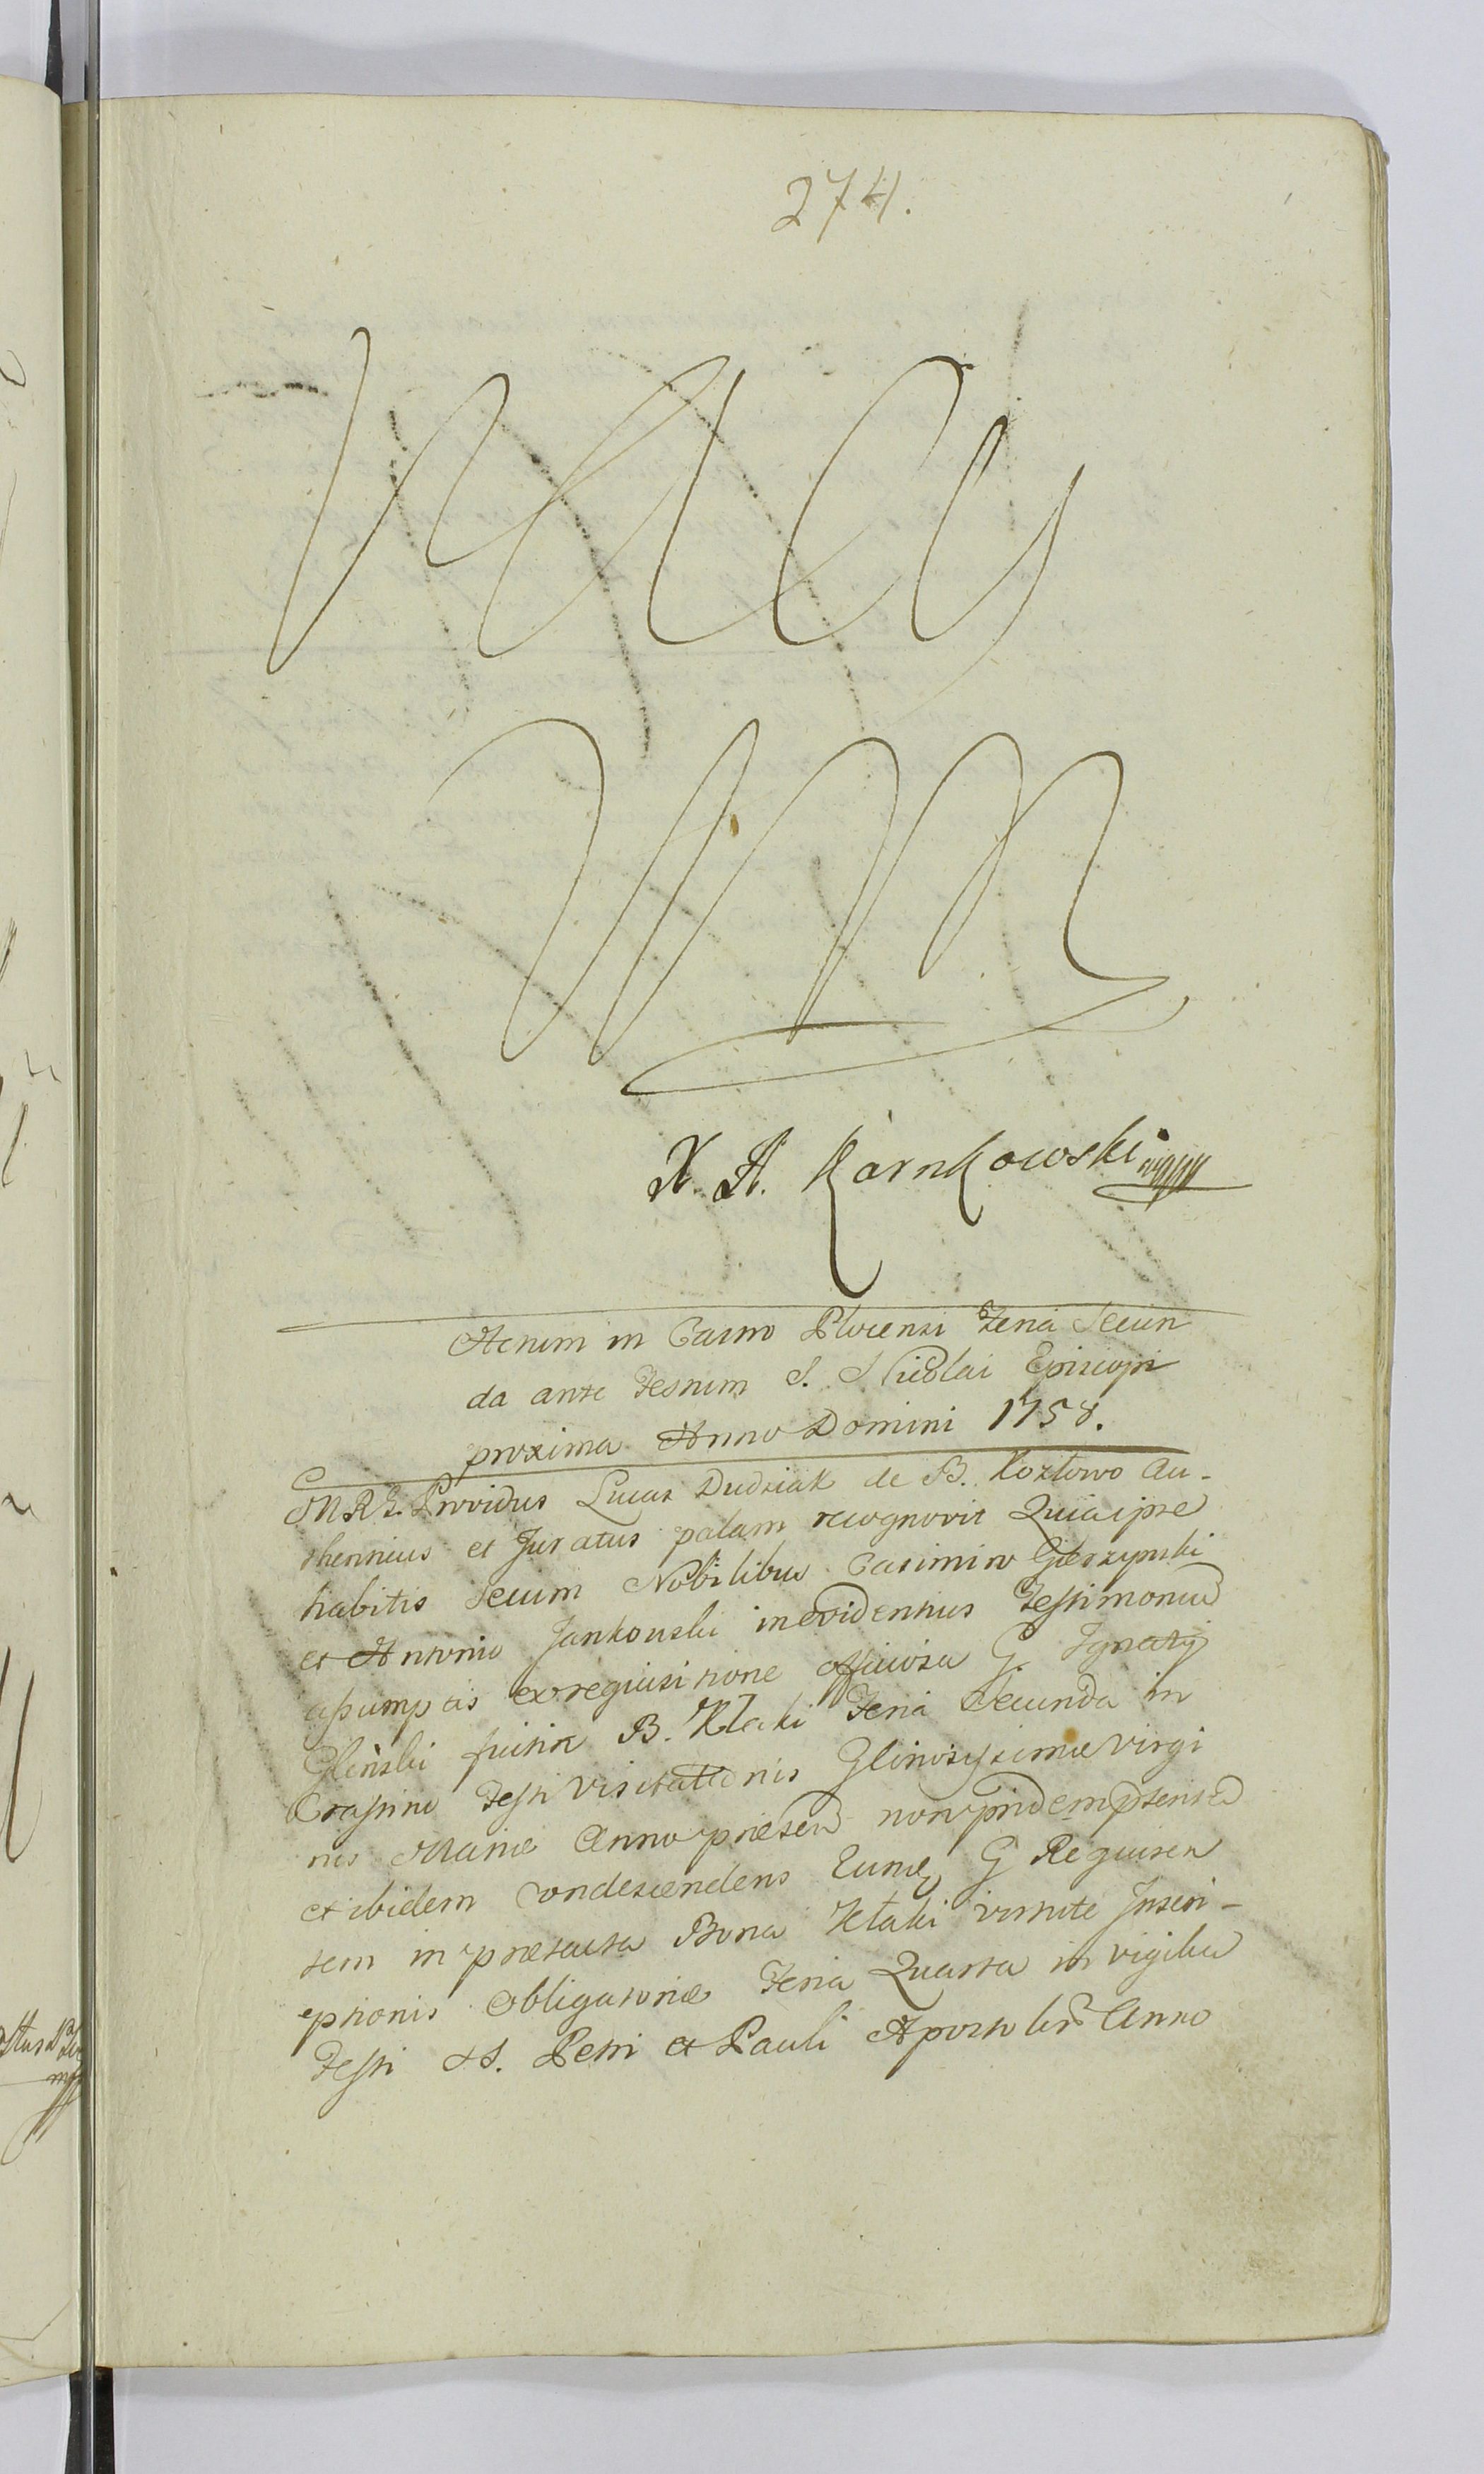 274.
X. A. Karnkowski mppa
Actum in Castro Plocensi Feria Secun
da ante Festum S. Nicolai Episcopi
proxima Anno Domini 1758.
M R S. Providus Lucas Dudziak de B. Kozłowo Au-
thenticus et Juratus palam recognovit Quia ipse
habitis secum Nobilibus Casimiro Gierzynski
et Antonio Jankowski in evidentius Testimonium
assumptis ex requisitione officiosa G. Ignatij
Glinski fuit in B. Kłaki Feria Secunda in
Crastino Festi Visitationis Gloriosissimae Virgi
nis Mariae Anno praesenti non pridem
et ibidem condescendens Eundem G Requiren
tem in praetacta Bona Kłaki virtute Inscri-
ptionis obligatoriae Feria Quarta in vigilia
Festi SS. Petri et Pauli Apostolorum Anno